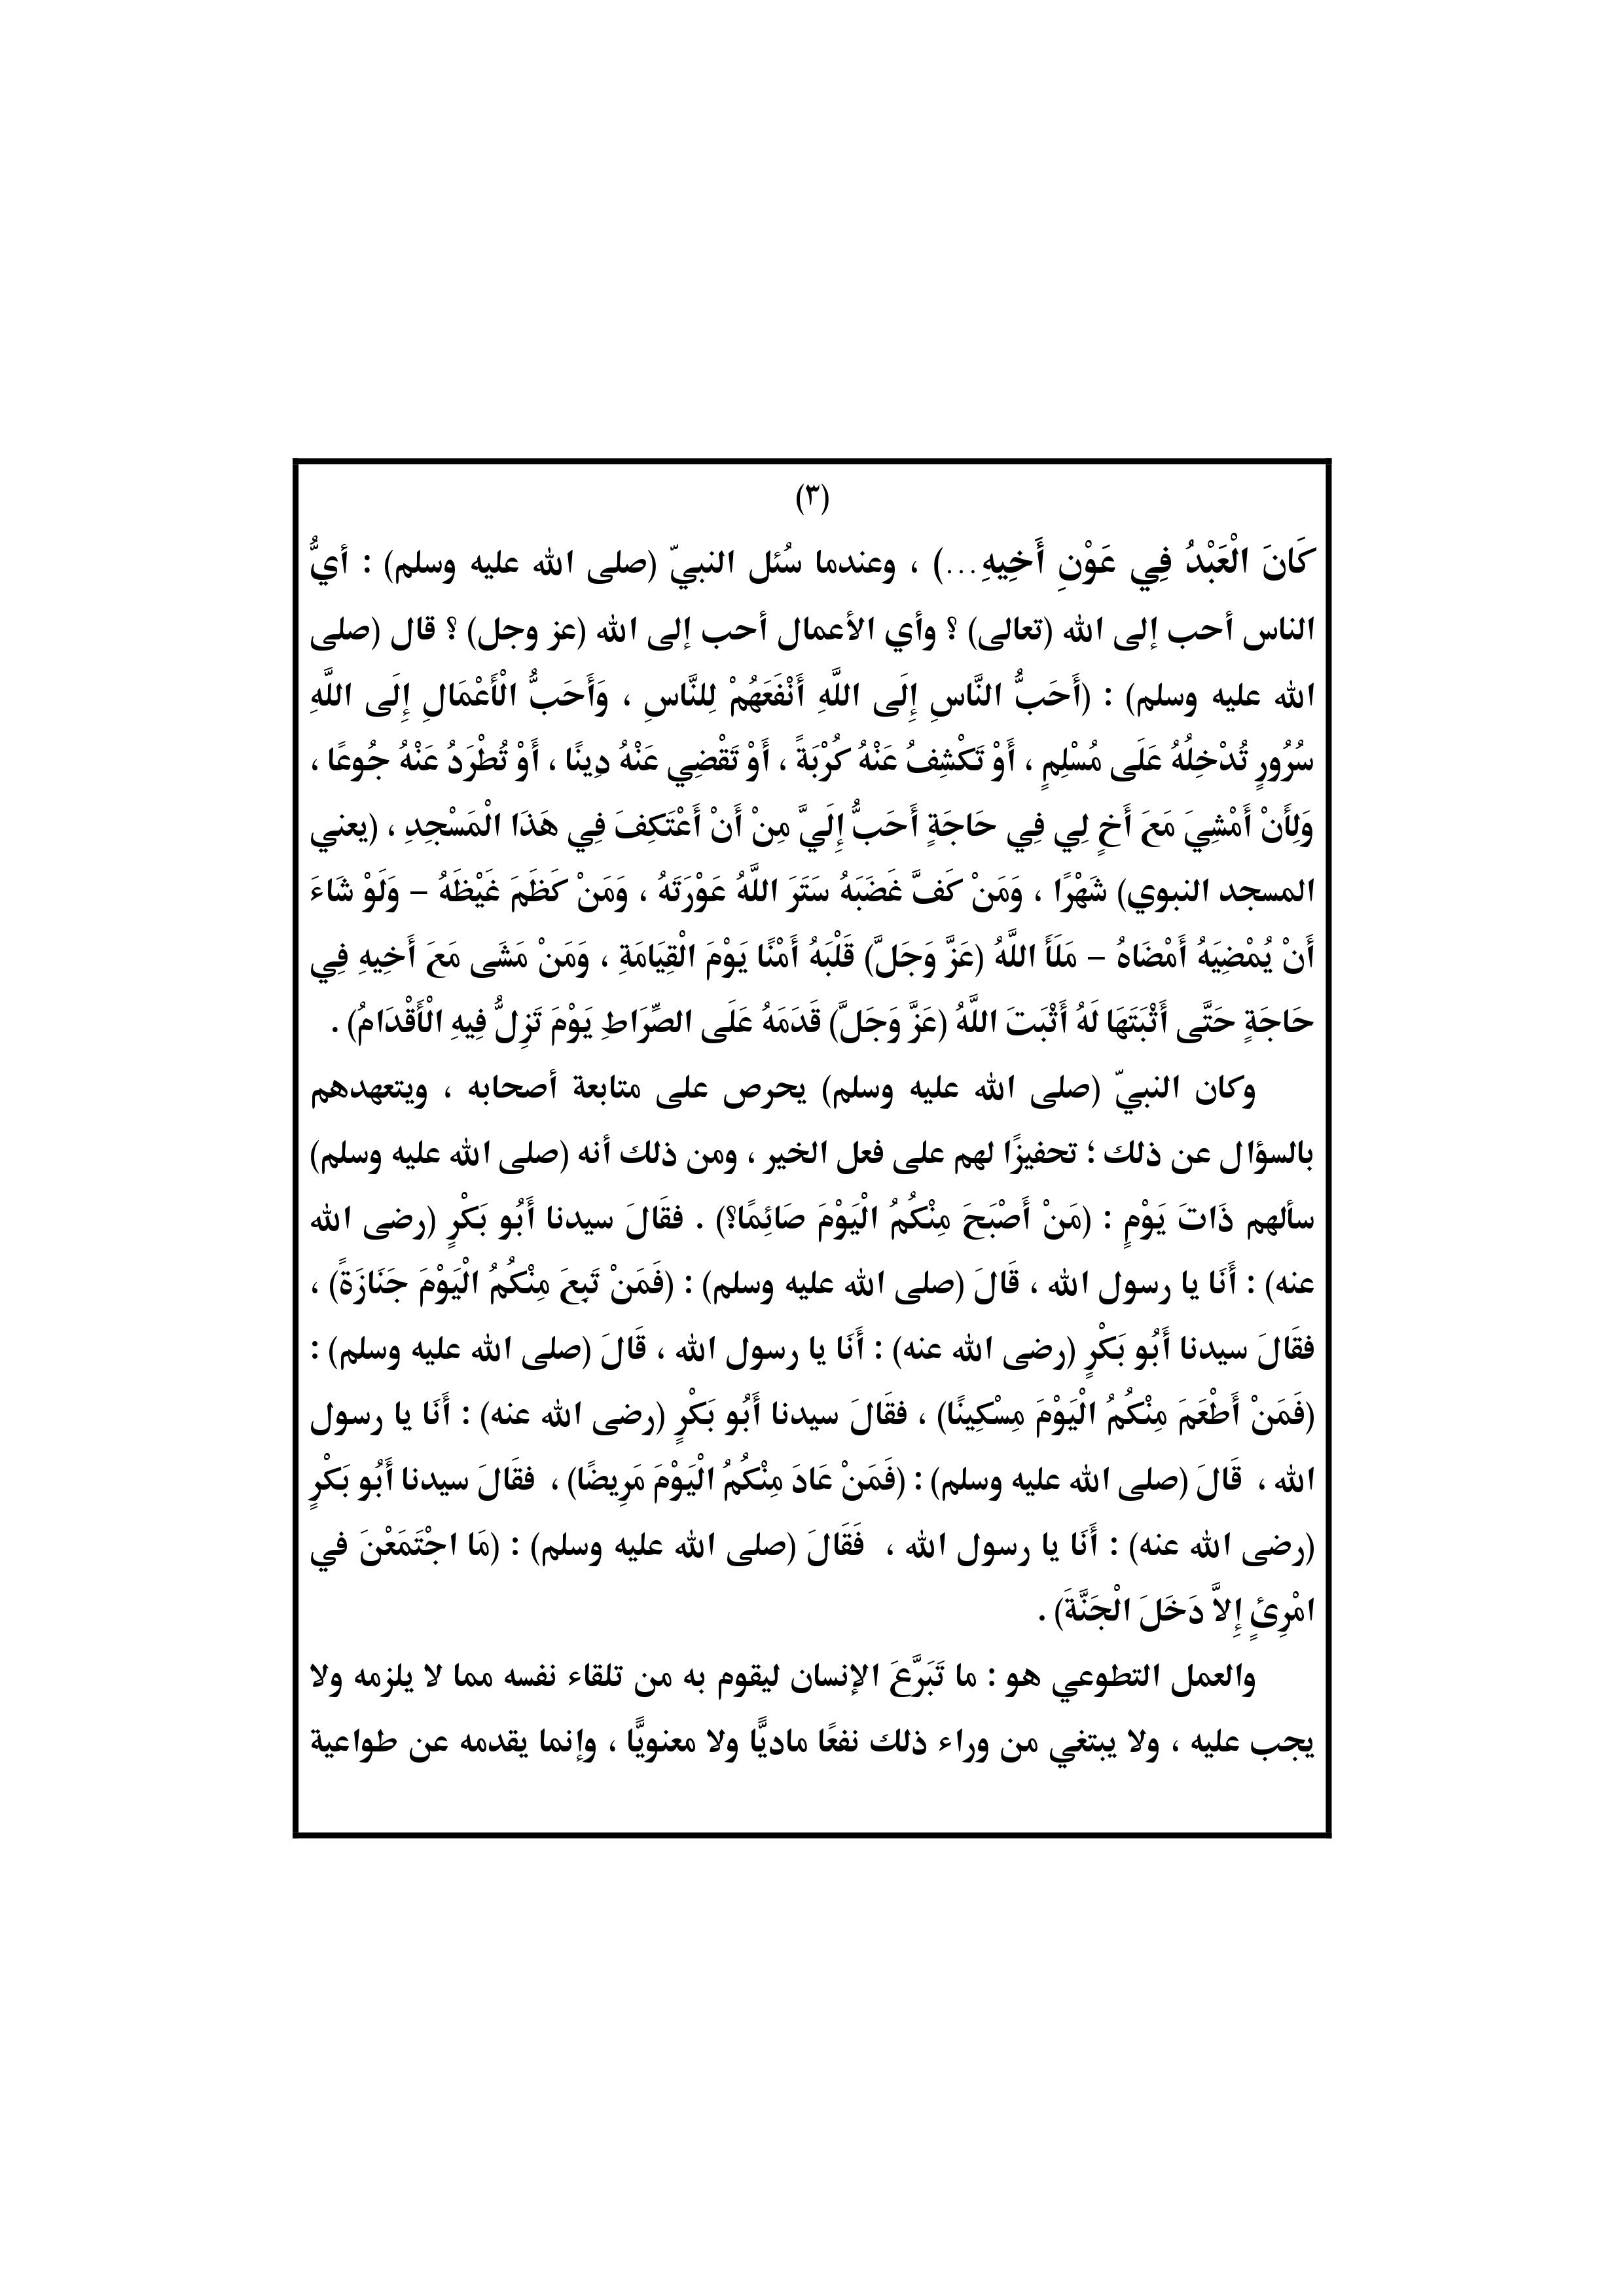 (٣)
كَانَ الْعَبْدُ فِي عَوْنِ أَخِيهِ...) ، وعندما سُئل النبيّ (صلى الله عليه وسلم) : أيُّ
الناس أحب إلى الله (تعالى) ؟ وأي الأعمال أحب إلى الله (عز وجل) ؟ قال (صلى
الله عليه وسلم) : (أَحَبُّ النَّاسِ إِلَى اللَّهِ أَنْفَعَهُمْ لِلنَّاسِ ، وَأَحَبُّ الْأَعْمَالِ إِلَى اللَّهِ
سُرُورٍ تُدْخِلُهُ عَلَى مُسْلِمٍ ، أَوْ تَكْشِفُ عَنْهُ كُرْبَةً ، أَوْ تَقْضِي عَنْهُ دِينًا ، أَوْ تُطْرَدُ عَنْهُ جُوعًا ،
وَلِأَنْ أَمْشِيَ مَعَ أَخٍ لِي فِي حَاجَةٍ أَحَبُّ إِلَيَّ مِنْ أَنْ أَعْتَكِفَ فِي هَذَا الْمَسْجِدِ ، (يعني
المسجد النبوي) شَهْرًا ، وَمَنْ كَفَّ غَضَبَهُ سَتَرَ اللَّهُ عَوْرَتَهُ ، وَمَنْ كَظَمَ غَيْظَهُ – وَلَوْ شَاءَ
أَنْ يُمْضِيَهُ أَمْضَاهُ – مَلَأَ اللَّهُ (عَزَّ وَجَلَّ) قَلْبَهُ أَمْنًا يَوْمَ الْقِيَامَةِ ، وَمَنْ مَشَى مَعَ أَخِيهِ فِي
حَاجَةٍ حَتَّى أَثْبَتَهَا لَهُ أَثْبَتَ اللَّهُ (عَزَّ وَجَلَّ) قَدَمَهُ عَلَى الصِّرَاطِ يَوْمَ تَزِلُّ فِيهِ الْأَقْدَامُ) .
وكان النبيّ (صلى الله عليه وسلم) يحرص على متابعة أصحابه ، ويتعهدهم
بالسؤال عن ذلك ؛ تحفيزًا لهم على فعل الخير ، ومن ذلك أنه (صلى الله عليه وسلم)
سألهم ذَاتَ يَوْمٍ : (مَنْ أَصْبَحَ مِنْكُمُ الْيَوْمَ صَائِمًا؟) . فقَالَ سيدنا أَبُو بَكْرٍ (رضى الله
عنه) : أَنَا يا رسول الله ، قَالَ (صلى الله عليه وسلم) : (فَمَنْ تَبِعَ مِنْكُمُ الْيَوْمَ جَنَازَةً) ،
فقَالَ سيدنا أَبُو بَكْرٍ (رضى الله عنه) : أَنَا يا رسول الله ، قَالَ (صلى الله عليه وسلم) :
(فَمَنْ أَطْعَمَ مِنْكُمُ الْيَوْمَ مِسْكِينًا) ، فقَالَ سيدنا أَبُو بَكْرٍ (رضى الله عنه) : أَنَا يا رسول
الله ، قَالَ (صلى الله عليه وسلم) : (فَمَنْ عَادَ مِنْكُمُ الْيَوْمَ مَرِيضًا) ، فقَالَ سيدنا أَبُو بَكْرٍ
(رضى الله عنه) : أَنَا يا رسول الله ، فَقَالَ (صلى الله عليه وسلم) : (مَا اجْتَمَعْنَ في
امْرِئٍ إِلاَّ دَخَلَ الْجَنَّةَ) .
والعمل التطوعي هو : ما تَبَرَّعَ الإنسان ليقوم به من تلقاء نفسه مما لا يلزمه ولا
يجب عليه ، ولا يبتغي من وراء ذلك نفعًا ماديًّا ولا معنويًّا ، وإنما يقدمه عن طواعية